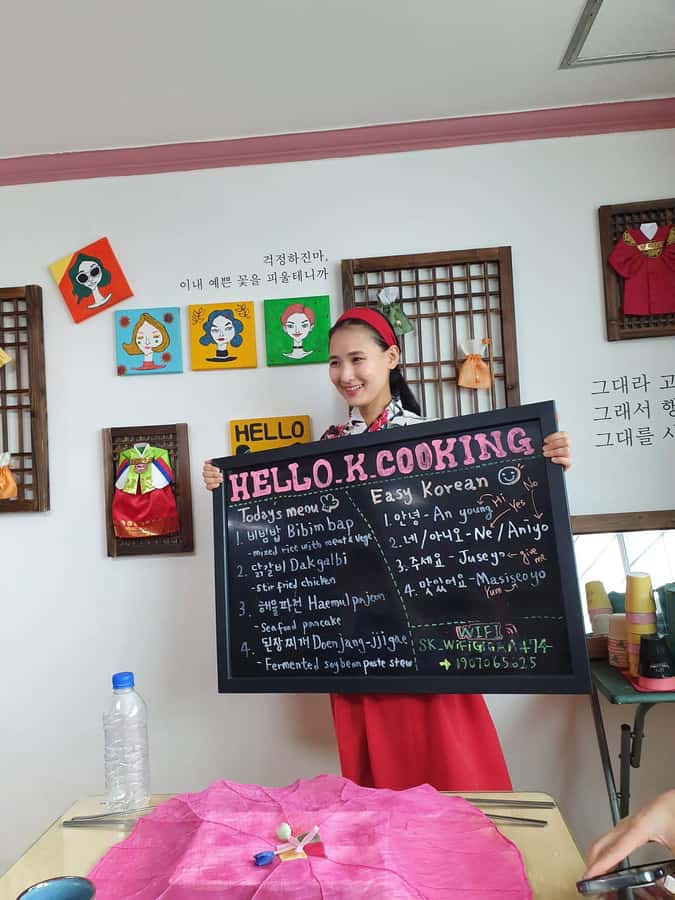 걱정하진마,
이내 예쁜 꽃을 피울테니까
그대라
그래서 행
그대를
HELLO
HELLO_K_COOKING
Todays menu
1. 비빔밥 Bibimbap
- mixed rice with meat & vege
2. 닭갈비 Dakgalbi
- stir fried chicken
3. 해물파전 Haemul pajeon
- Seafood pancake
4. 된장찌개 Doenjang-jjigae
- Fermented soybean paste stew
Easy Korean
Hi
Yes
No
1. 안녕 - An young
2. 네/아니오 - Ne/Aniyo
3. 주세요 - Juseyo
give me
4. 맛있어요 - Masiseoyo
Yum
WIFI